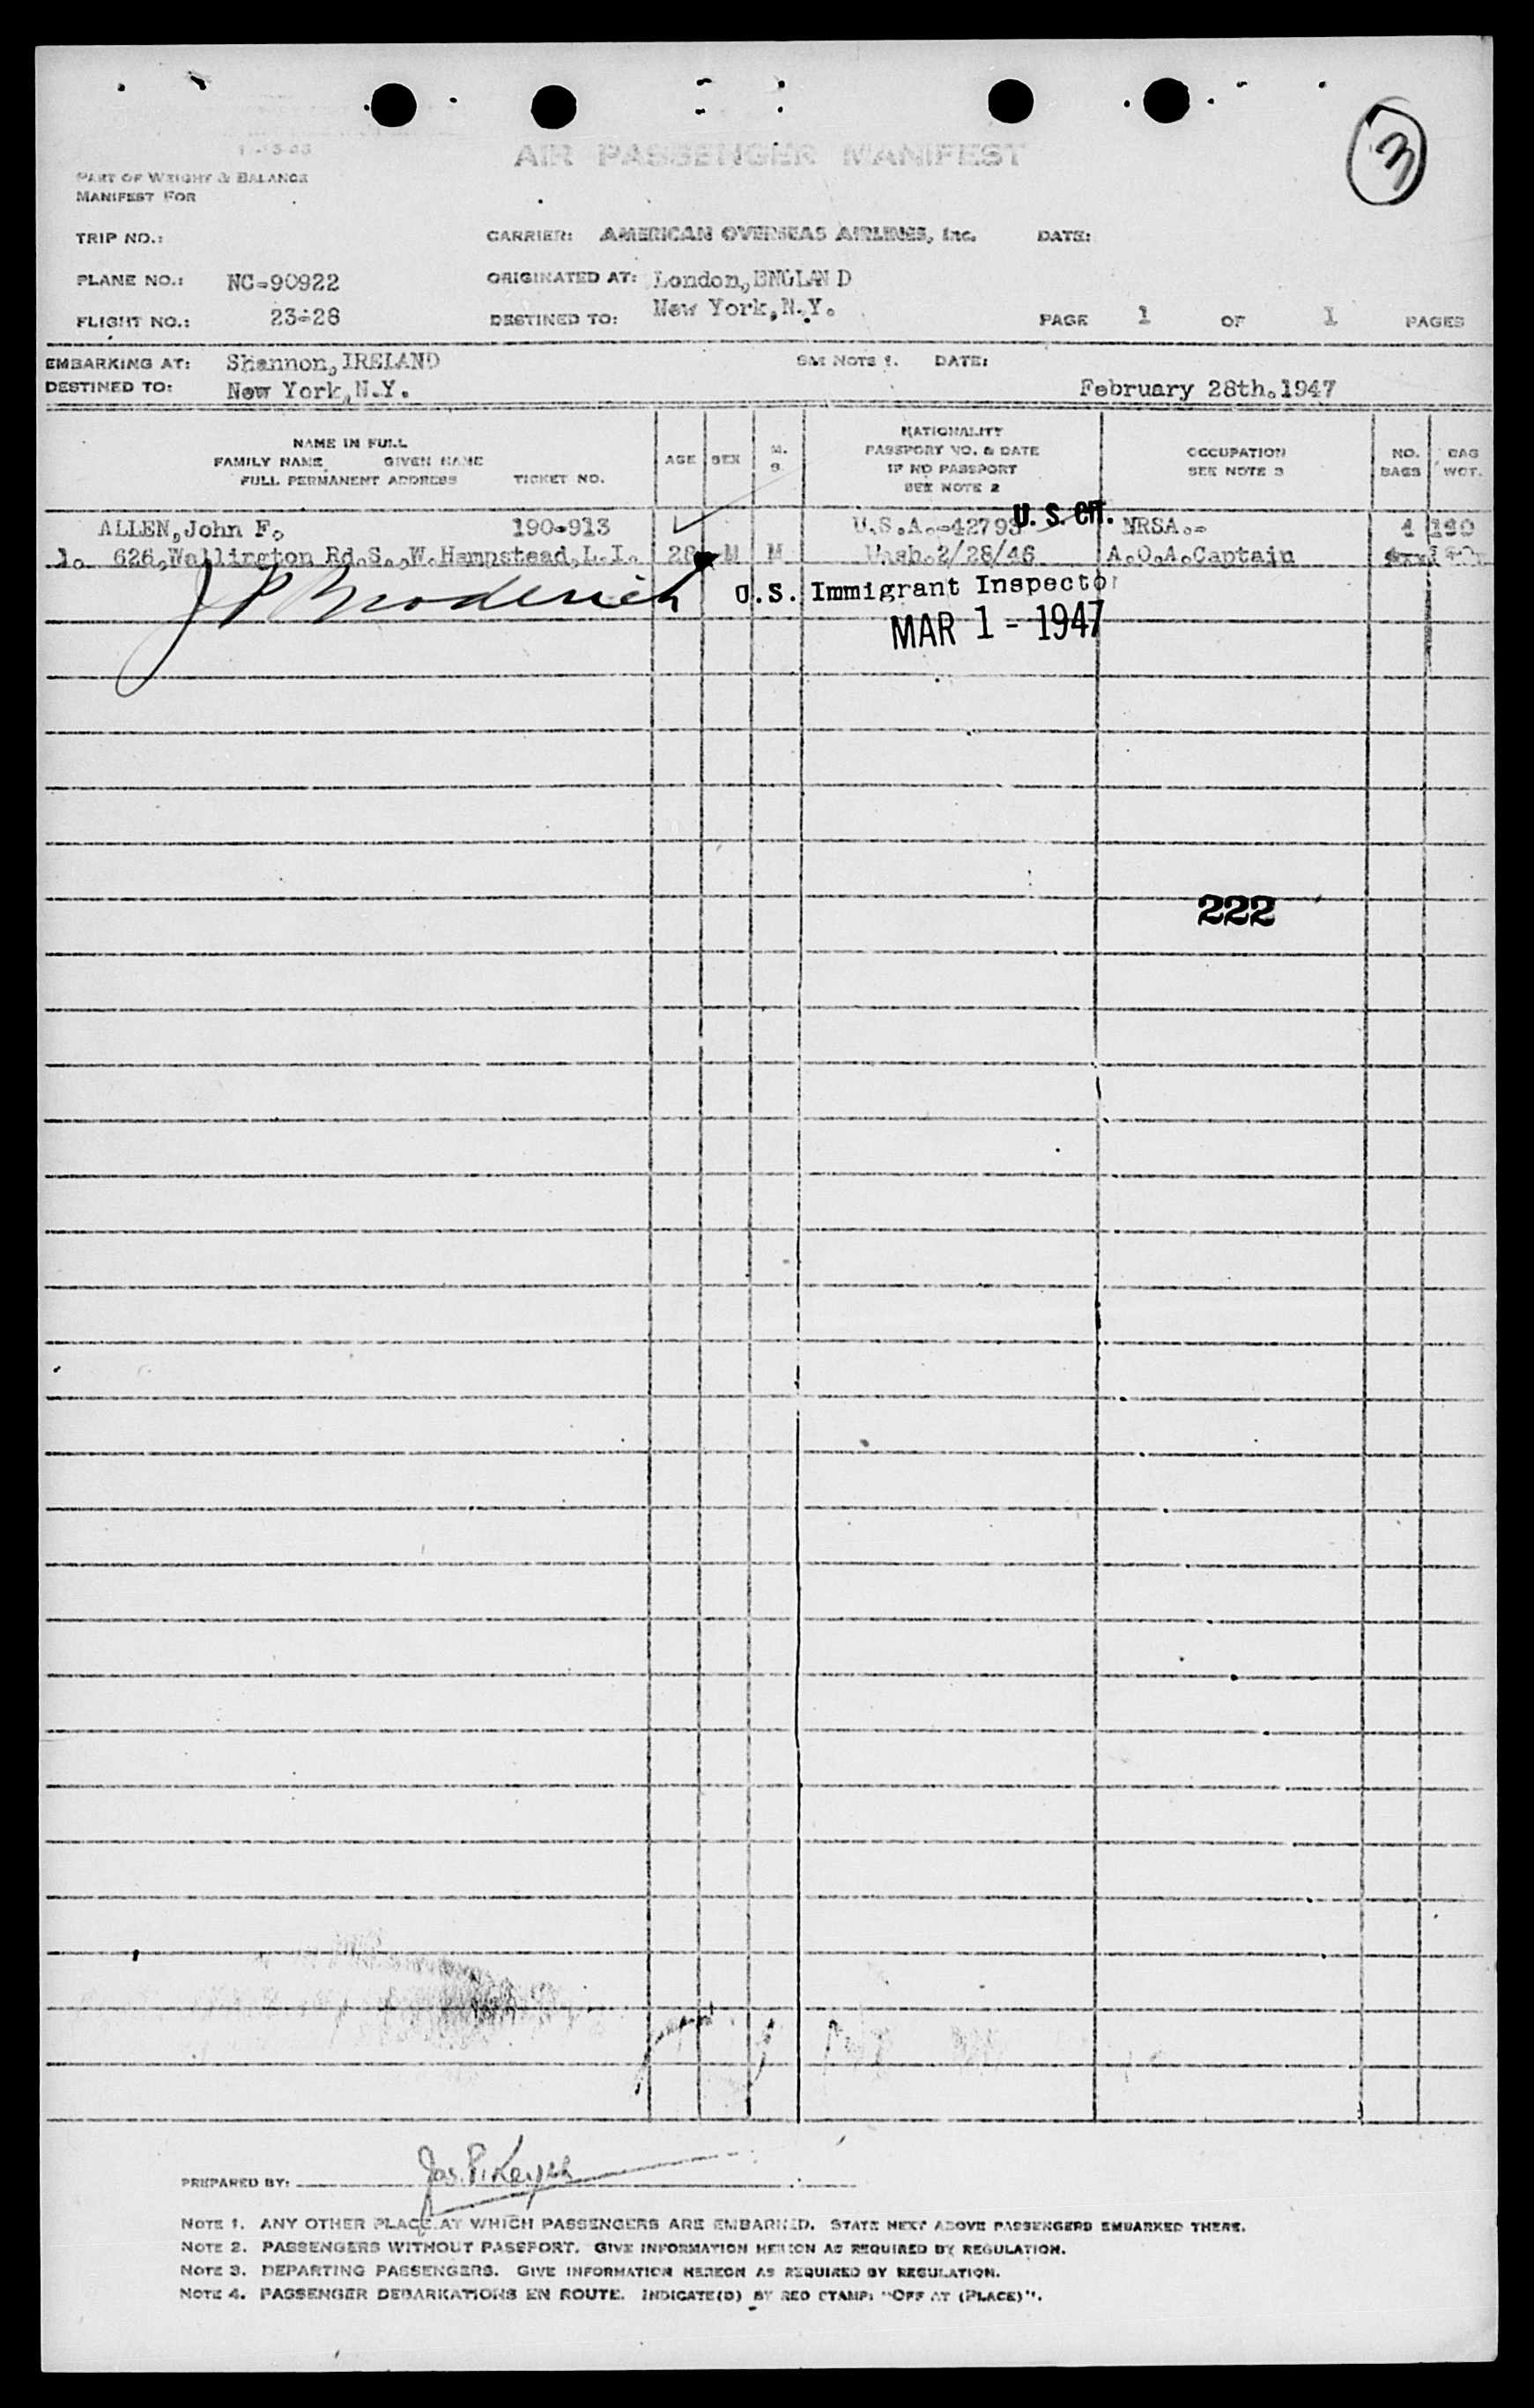 3
AIR PASSENGER MANIFEST
PART OF WEIGHT & BALANCE
MANIFEST FOR
TRIP NO.: CARRIER: AMERICAN OVERSEAS AIRLINES, Inc. DATE:
PLANE NO.: NC-90922 ORIGINATED AT: London, ENGLAN D
FLIGHT NO.: 23-28 DESTINED TO: New York, N.Y. PAGE 1 OF 1 PAGES
EMBARKING AT: Shannon, IRELAND SEE NOTE 1. DATE:
DESTINED TO: New York, N.Y. February 28th. 1947
NAME IN FULL
FAMILY NAME GIVEN NAME
FULL PERMANENT ADDRESS TICKET NO.
AGE SEX M. S.
NATIONALITY
PASSPORT NO. & DATE
IF NO PASSPORT
SEE NOTE 2
OCCUPATION
SEE NOTE 3
NO. BAGS
BAG WGT.
ALLEN, John F. 190-913 U.S.A.-42793 U. S. CIT. NRSA.- 1
1. 626, Wallington Rd.S., W.Hempstead, L.I. 28 M M Wash.2/28/46 A.O.A.Captain
J P Broderick U.S. Immigrant Inspector
MAR 1 - 1947
222
PREPARED BY:
NOTE 1. ANY OTHER PLACE AT WHICH PASSENGERS ARE EMBARKED. STATE NEXT ABOVE PASSENGERS EMBARKED THERE.
NOTE 2. PASSENGERS WITHOUT PASSPORT. GIVE INFORMATION HEREON AS REQUIRED BY REGULATION.
NOTE 3. DEPARTING PASSENGERS. GIVE INFORMATION HEREON AS REQUIRED BY REGULATION.
NOTE 4. PASSENGER DEBARKATIONS EN ROUTE. INDICATE(D) BY RED STAMP: "OFF AT (PLACE)".